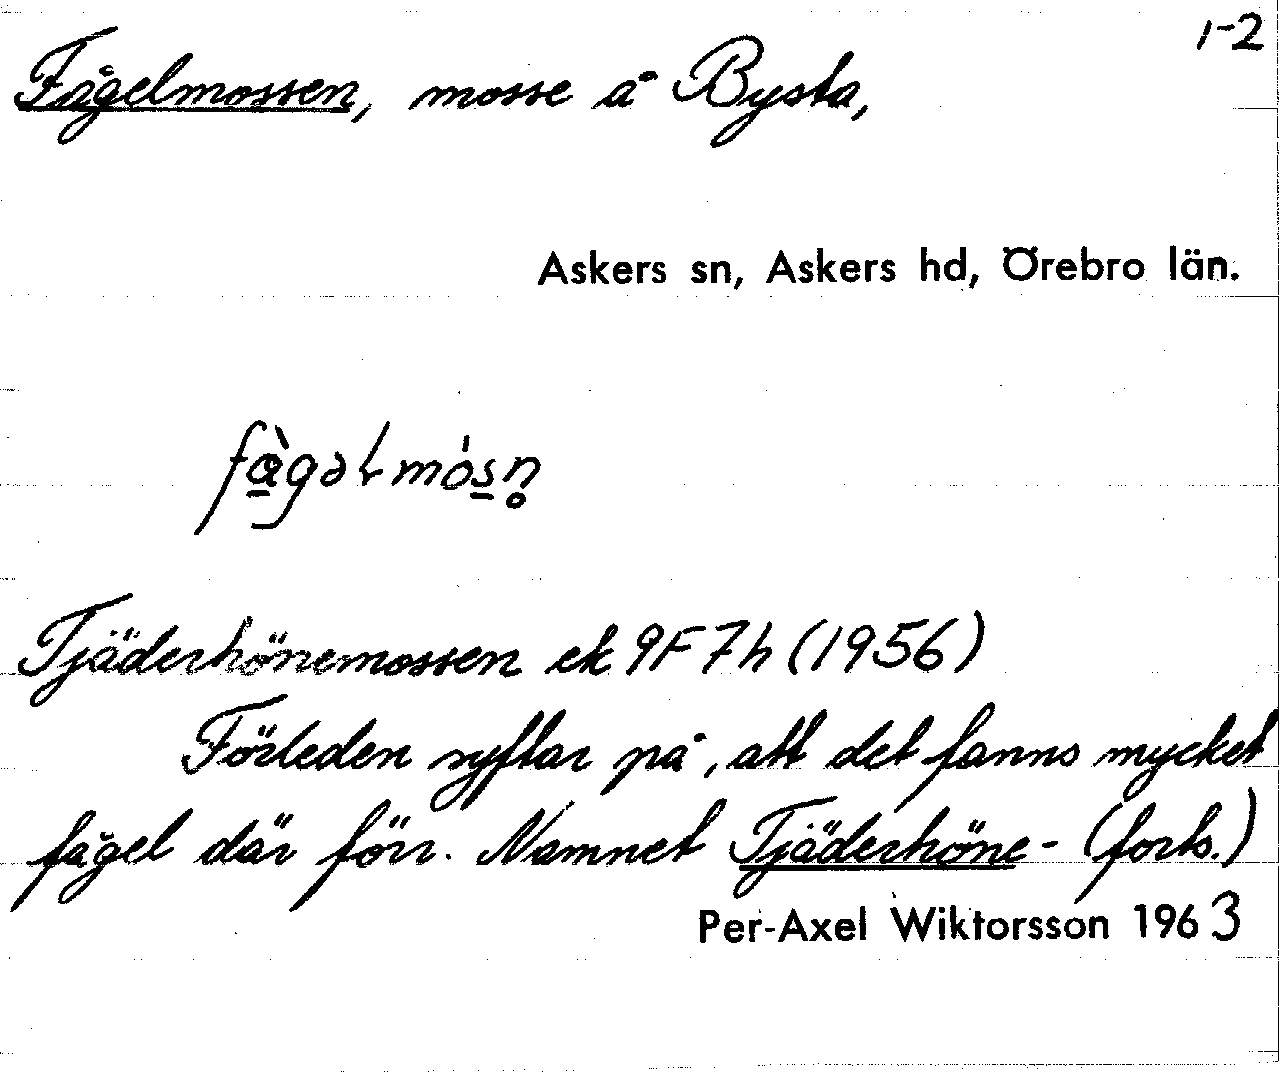 1-2
Fågelmossen, mosse å Bysta,
Askers sn, Askers hd, Örebro län.
Tjäderhönemossen ek 9F7h (1956)
Förleden syftar på, att det fanns mycket
fågel där förr. Namnet Tjäderhöne- (forts.)
Per-Axel Wiktorsson 1963